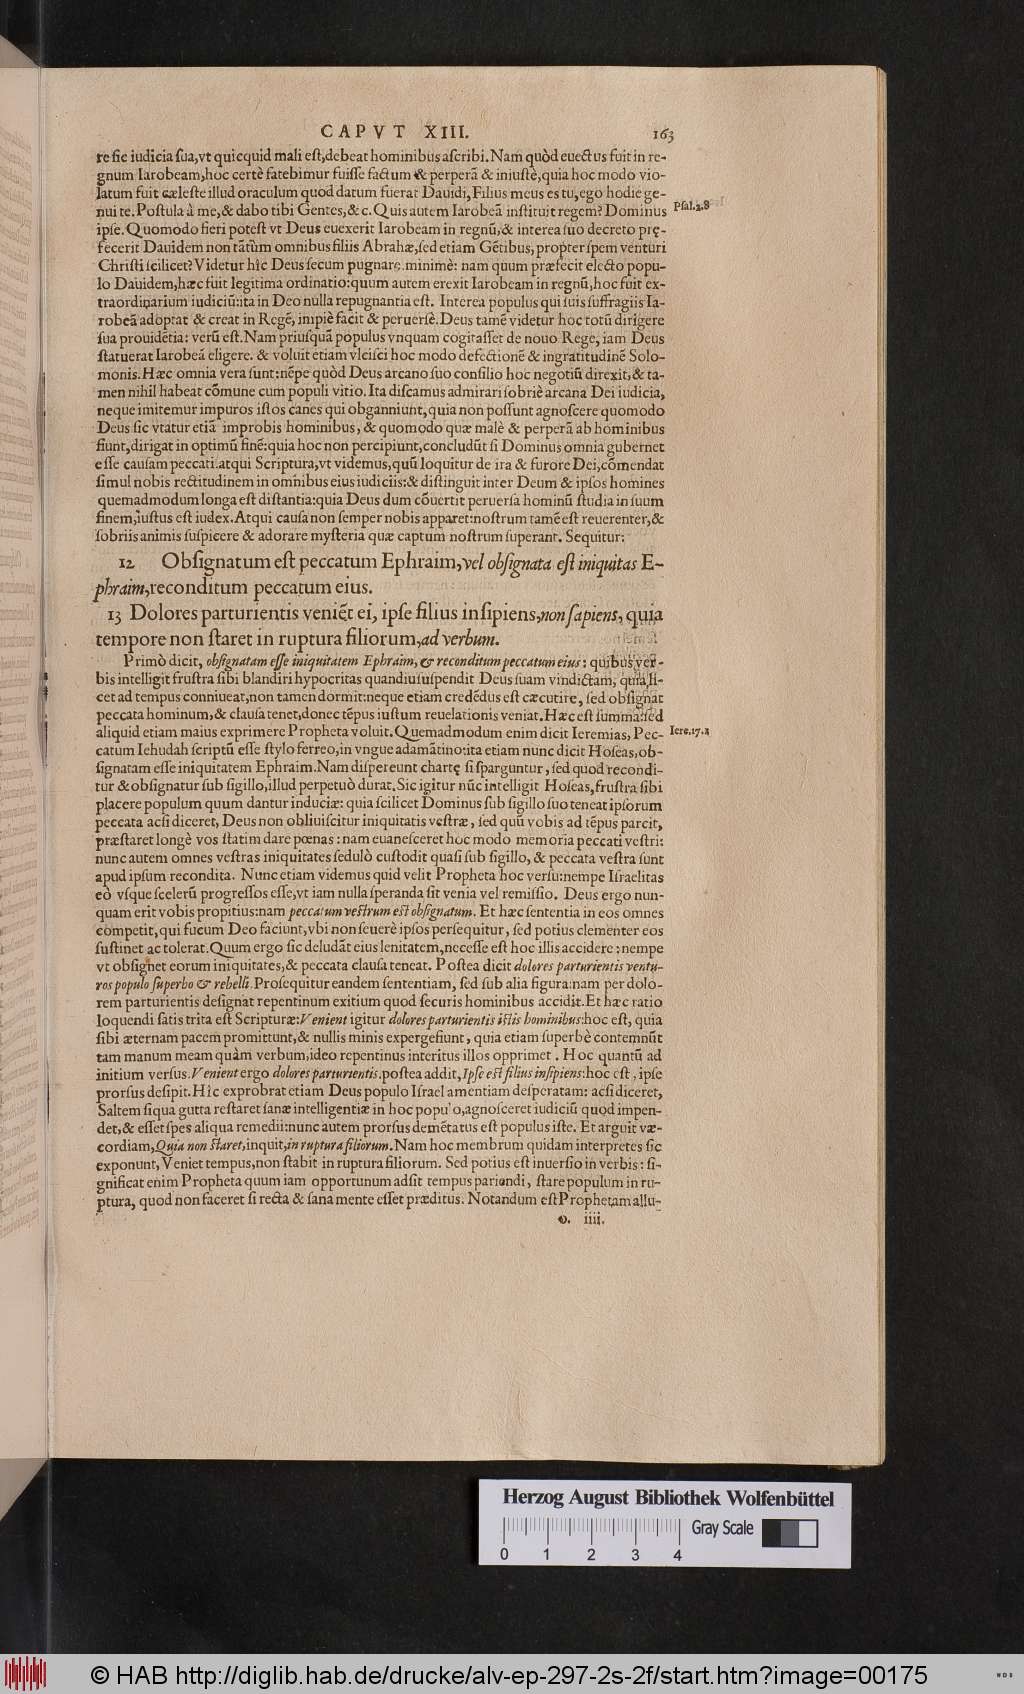 CAPVT XIII. 163
re sic iudicia sua,vt quicquid mali est,debeat hominibus ascribi.Nam quòd euectus fuit in re-
gnum Iarobeam,hoc certè fatebimur fuisse factum & perperã & iniustè,quia hoc modo vio-
latum fuit cæleste illud oraculum quod datum fuerat Dauidi,Filius meus es tu,ego hodie ge-
nui te.Postula à me,& dabo tibi Gentes,&c.Quis autem Iarobeã instituit regem? Dominus
Psal.2.8
ipse.Quomodo fieri potest vt Deus euexerit Iarobeam in regnũ,& interea suo decreto prę-
fecerit Dauidem non tãtùm omnibus filiis Abrahæ,sed etiam Gẽtibus,propter spem venturi
Christi scilicet? Videtur hîc Deus secum pugnare.minimè: nam quum præfecit electo popu-
lo Dauidem,hæc fuit legitima ordinatio:quum autem erexit Iarobeam in regnũ,hoc fuit ex-
traordinarium iudiciũ:ita in Deo nulla repugnantia est. Interea populus qui suis suffragiis Ia-
robeã adoptat & creat in Regẽ, impiè facit & peruersè.Deus tamẽ videtur hoc totũ dirigere
sua prouidẽtia: verũ est.Nam priusquã populus vnquam cogitasset de nouo Rege, iam Deus
statuerat Iarobeã eligere. & voluit etiam vlcisci hoc modo defectionẽ & ingratitudinẽ Solo-
monis.Hæc omnia vera sunt:nẽpe quòd Deus arcano suo consilio hoc negotiũ direxit,& ta-
men nihil habeat cõmune cum populi vitio.Ita discamus admirari sobriè arcana Dei iudicia,
neque imitemur impuros istos canes qui obganniunt,quia non possunt agnoscere quomodo
Deus sic vtatur etiã improbis hominibus, & quomodo quæ malè & perperã ab hominibus
fiunt,dirigat in optimũ finẽ:quia hoc non percipiunt,concludũt si Dominus omnia gubernet
esse causam peccati.atqui Scriptura,vt videmus,quũ loquitur de ira & furore Dei,cõmendat
simul nobis rectitudinem in omnibus eius iudiciis:& distinguit inter Deum & ipsos homines
quemadmodum longa est distantia:quia Deus dum cõuertit peruersa hominũ studia in suum
finem,iustus est iudex.Atqui causa non semper nobis apparet:nostrum tamẽ est reuerenter,&
sobriis animis suspicere & adorare mysteria quæ captum nostrum superant. Sequitur:
12 Obsignatum est peccatum Ephraim,vel obsignata est iniquitas E-
phraim,reconditum peccatum eius.
13 Dolores parturientis veniẽt ei, ipse filius insipiens,non sapiens, quia
tempore non staret in ruptura filiorum,ad verbum.
Primò dicit, obsignatam esse iniquitatem Ephraim, & reconditum peccatum eius: quibus ver-
bis intelligit frustra sibi blandiri hypocritas quandiu suspendit Deus suam vindictam, quia li-
cet ad tempus conniueat,non tamen dormit:neque etiam credẽdus est cæcutire, sed obsignat
peccata hominum,& clausa tenet,donec tẽpus iustum reuelationis veniat.Hæc est summa:sed
aliquid etiam maius exprimere Propheta voluit. Quemadmodum enim dicit Ieremias, Pec-
Iere.17.1
catum Iehudah scriptũ esse stylo ferreo,in vngue adamãtino:ita etiam nunc dicit Hoseas,ob-
signatam esse iniquitatem Ephraim.Nam dispereunt chartę si sparguntur, sed quod recondi-
tur & obsignatur sub sigillo,illud perpetuò durat.Sic igitur nũc intelligit Hoseas,frustra sibi
placere populum quum dantur induciæ: quia scilicet Dominus sub sigillo suo teneat ipsorum
peccata acsi diceret, Deus non obliuiscitur iniquitatis vestræ, sed quũ vobis ad tẽpus parcit,
præstaret longè vos statim dare pœnas: nam euanesceret hoc modo memoria peccati vestri:
nunc autem omnes vestras iniquitates sedulò custodit quasi sub sigillo, & peccata vestra sunt
apud ipsum recondita. Nunc etiam videmus quid velit Propheta hoc versu:nempe Israelitas
eò vsque scelerũ progressos esse,vt iam nulla speranda sit venia vel remissio. Deus ergo nun-
quam erit vobis propitius:nam peccatum vestrum est obsignatum. Et hæc sententia in eos omnes
competit,qui fucum Deo faciunt,vbi non seuerè ipsos persequitur, sed potius clementer eos
sustinet ac tolerat.Quum ergo sic deludãt eius lenitatem,necesse est hoc illis accidere: nempe
vt obsignet eorum iniquitates,& peccata clausa teneat. Postea dicit dolores parturientis ventu-
ros populo superbo & rebelli.Prosequitur eandem sententiam, sed sub alia figura:nam per dolo-
rem parturientis designat repentinum exitium quod securis hominibus accidit.Et hæc ratio
loquendi satis trita est Scripturæ:Venient igitur dolores parturientis istis hominibus:hoc est, quia
sibi æternam pacem promittunt,& nullis minis expergefiunt, quia etiam superbè contemnũt
tam manum meam quàm verbum,ideo repentinus interitus illos opprimet. Hoc quantũ ad
initium versus.Venient ergo dolores parturientis.postea addit,Ipse est filius insipiens:hoc est, ipse
prorsus desipit.Hîc exprobrat etiam Deus populo Israel amentiam desperatam: acsi diceret,
Saltem siqua gutta restaret sanæ intelligentiæ in hoc populo,agnosceret iudiciũ quod impen-
det,& esset spes aliqua remedii:nunc autem prorsus demẽtatus est populus iste. Et arguit væ-
cordiam,Quia non staret,inquit,in ruptura filiorum.Nam hoc membrum quidam interpretes sic
exponunt,Veniet tempus,non stabit in ruptura filiorum. Sed potius est inuersio in verbis: si-
gnificat enim Propheta quum iam opportunum adsit tempus pariendi, stare populum in ru-
ptura, quod non faceret si recta & sana mente esset præditus. Notandum est Prophetam allu-
v. iiii.
Herzog August Bibliothek Wolfenbüttel
Gray Scale
0 1 2 3 4
© HAB http://diglib.hab.de/drucke/alv-ep-297-2s-2f/start.htm?image=00175
WDB